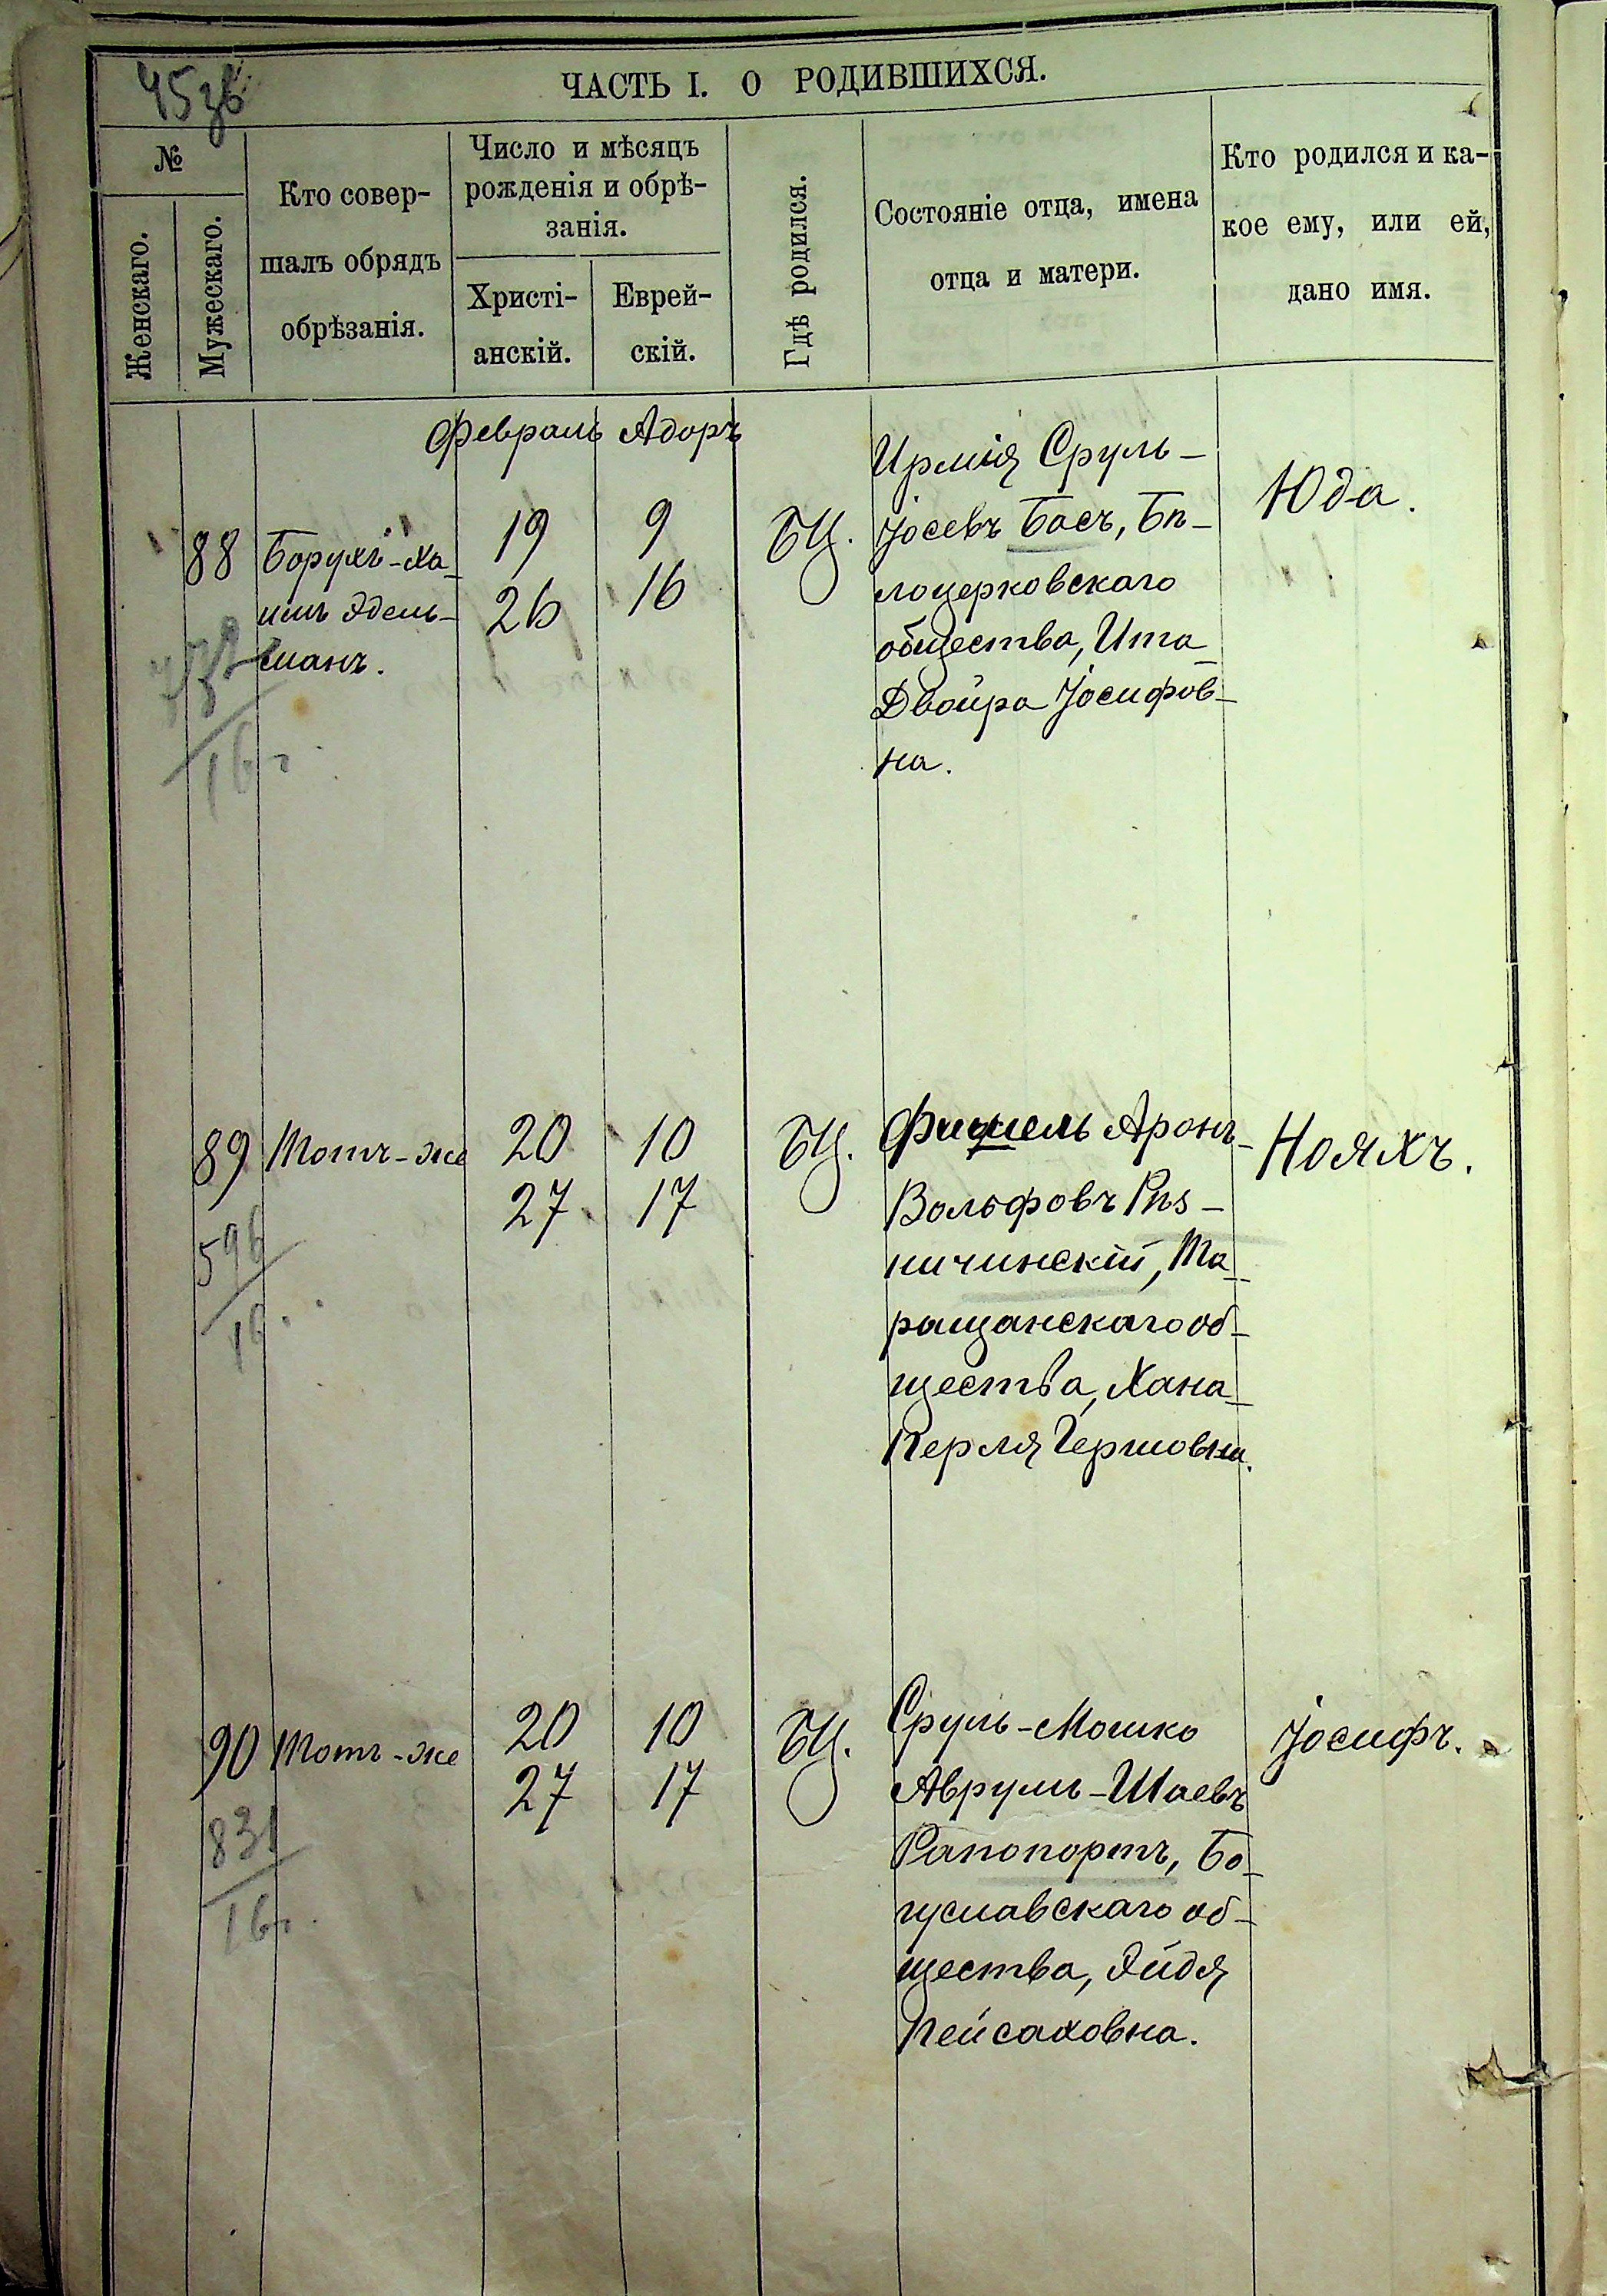 45зв
ЧАСТЬ I. О РОДИВШИХСЯ.
№
Женскаго.
Мужескаго.
Кто совер-
шалъ обрядъ
обрѣзанія.
Число и мѣсяцъ
рожденія и обрѣ-
занія.
Христі-
анскій.
Еврей-
скій.
Гдѣ родился.
Состояніе отца, имена
отца и матери.
Кто родился и ка-
кое ему, или ей,
дано имя.
Февраль Адоръ
88
Борухъ-Ха-
имъ Эдель-
манъ.
19 9
26 16
БЦ.
Ирмія Сруль-
Іосевъ Басъ, Бѣ-
лоцерковскаго
общества, Ита-
Двойра Іосифов-
на.
Юда.
16г.
89
Тотъ-же
20 10
27 17
БЦ.
Фишель Аронъ-
Вольфовъ Рѣз-
ничинскій, Та-
ращанскаго об-
щества, Хана-
Перля Гершовна.
Нояхъ.
596
16.
90
Тотъ-же
20 10
27 17
БЦ.
Сруль-Мошко
Аврумъ-Шаевъ
Рапопортъ, Бо-
гуславскаго об-
щества, Эйдя
Пейсаховна.
Іосифъ.
831
16г.